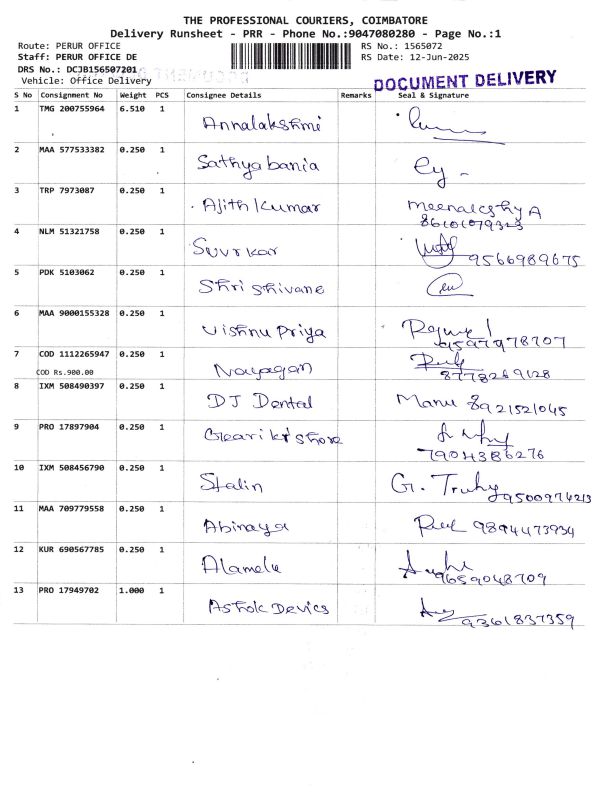 THE PROFESSIONAL COURIERS, COIMBATORE
Delivery Runsheet - PRR - Phone No.:9047080280 - Page No.:1
Route: PERUR OFFICE RS No.: 1565072
Staff: PERUR OFFICE DE RS Date: 12-Jun-2025
DRS No.: DCJB156507201
Vehicle: Office Delivery DOCUMENT DELIVERY
S No Consignment No Weight PCS Consignee Details Remarks Seal & Signature
1 TMG 200755964 6.510 1 Annalakshmi
2 MAA 577533382 0.250 1 Sathya bania
3 TRP 7973087 0.250 1 Ajith Kumar Meenakshy A
4 NLM 51321758 0.250 1 Suvrkar 9566989675
5 PDK 5103062 0.250 1 Shri Shivane
6 MAA 9000155328 0.250 1 Vishnu Priya
7 COD 1112265947 0.250 1 Nayagan
COD Rs.900.00 8778269128
8 IXM 508490397 0.250 1 DJ Dental Manu 8921521045
9 PRO 17897904 0.250 1
7904386276
10 IXM 508456790 0.250 1 Stalin G. 9500974213
11 MAA 709779558 0.250 1 Abinaya 9894473934
12 KUR 690567785 0.250 1 Alamelu
9659048709
13 PRO 17949702 1.000 1 Ashok Devics
9361837359